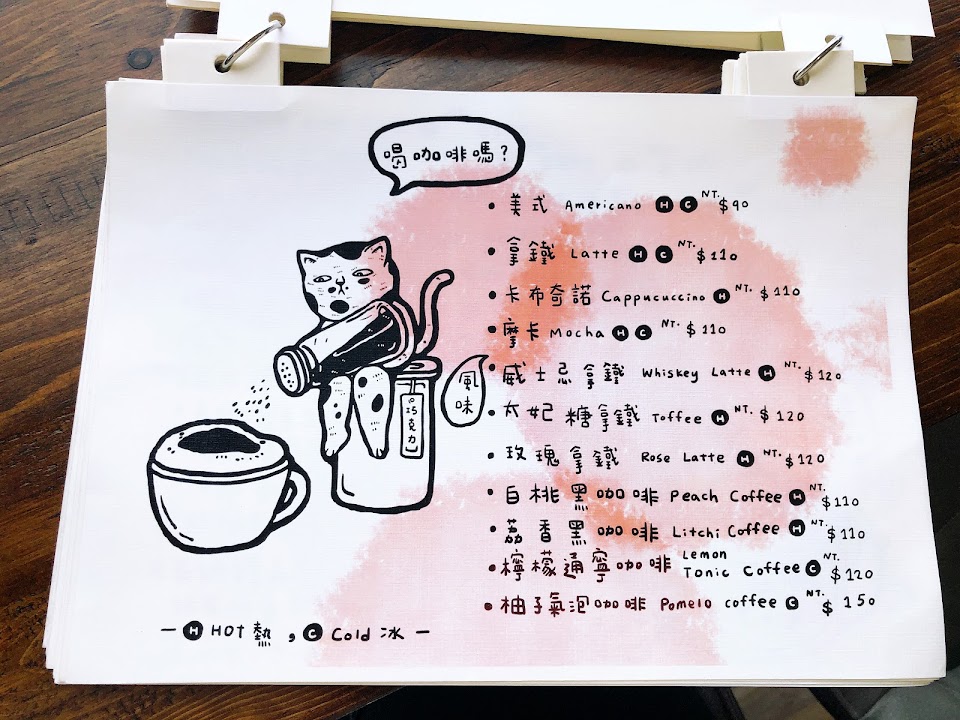 喝咖啡嗎?
美式 Americano H C NT. $90
拿鐵 Latte H C NT. $110
卡布奇諾 Cappucuccino H NT. $110
摩卡 Mocha H C NT. $110
威士忌拿鐵 Whiskey Latte H NT. $120
太妃糖拿鐵 Toffee H NT. $120
玫瑰拿鐵 Rose Latte H NT. $120
白桃黑咖啡 Peach Coffee H NT. $110
荔香黑咖啡 Litchi Coffee H NT. $110
檸檬通寧咖啡 Lemon Tonic Coffee C NT. $120
柚子氣泡咖啡 Pomelo coffee C NT. $150
風味
巧克力
- H HOT 熱 , C Cold 冰 -